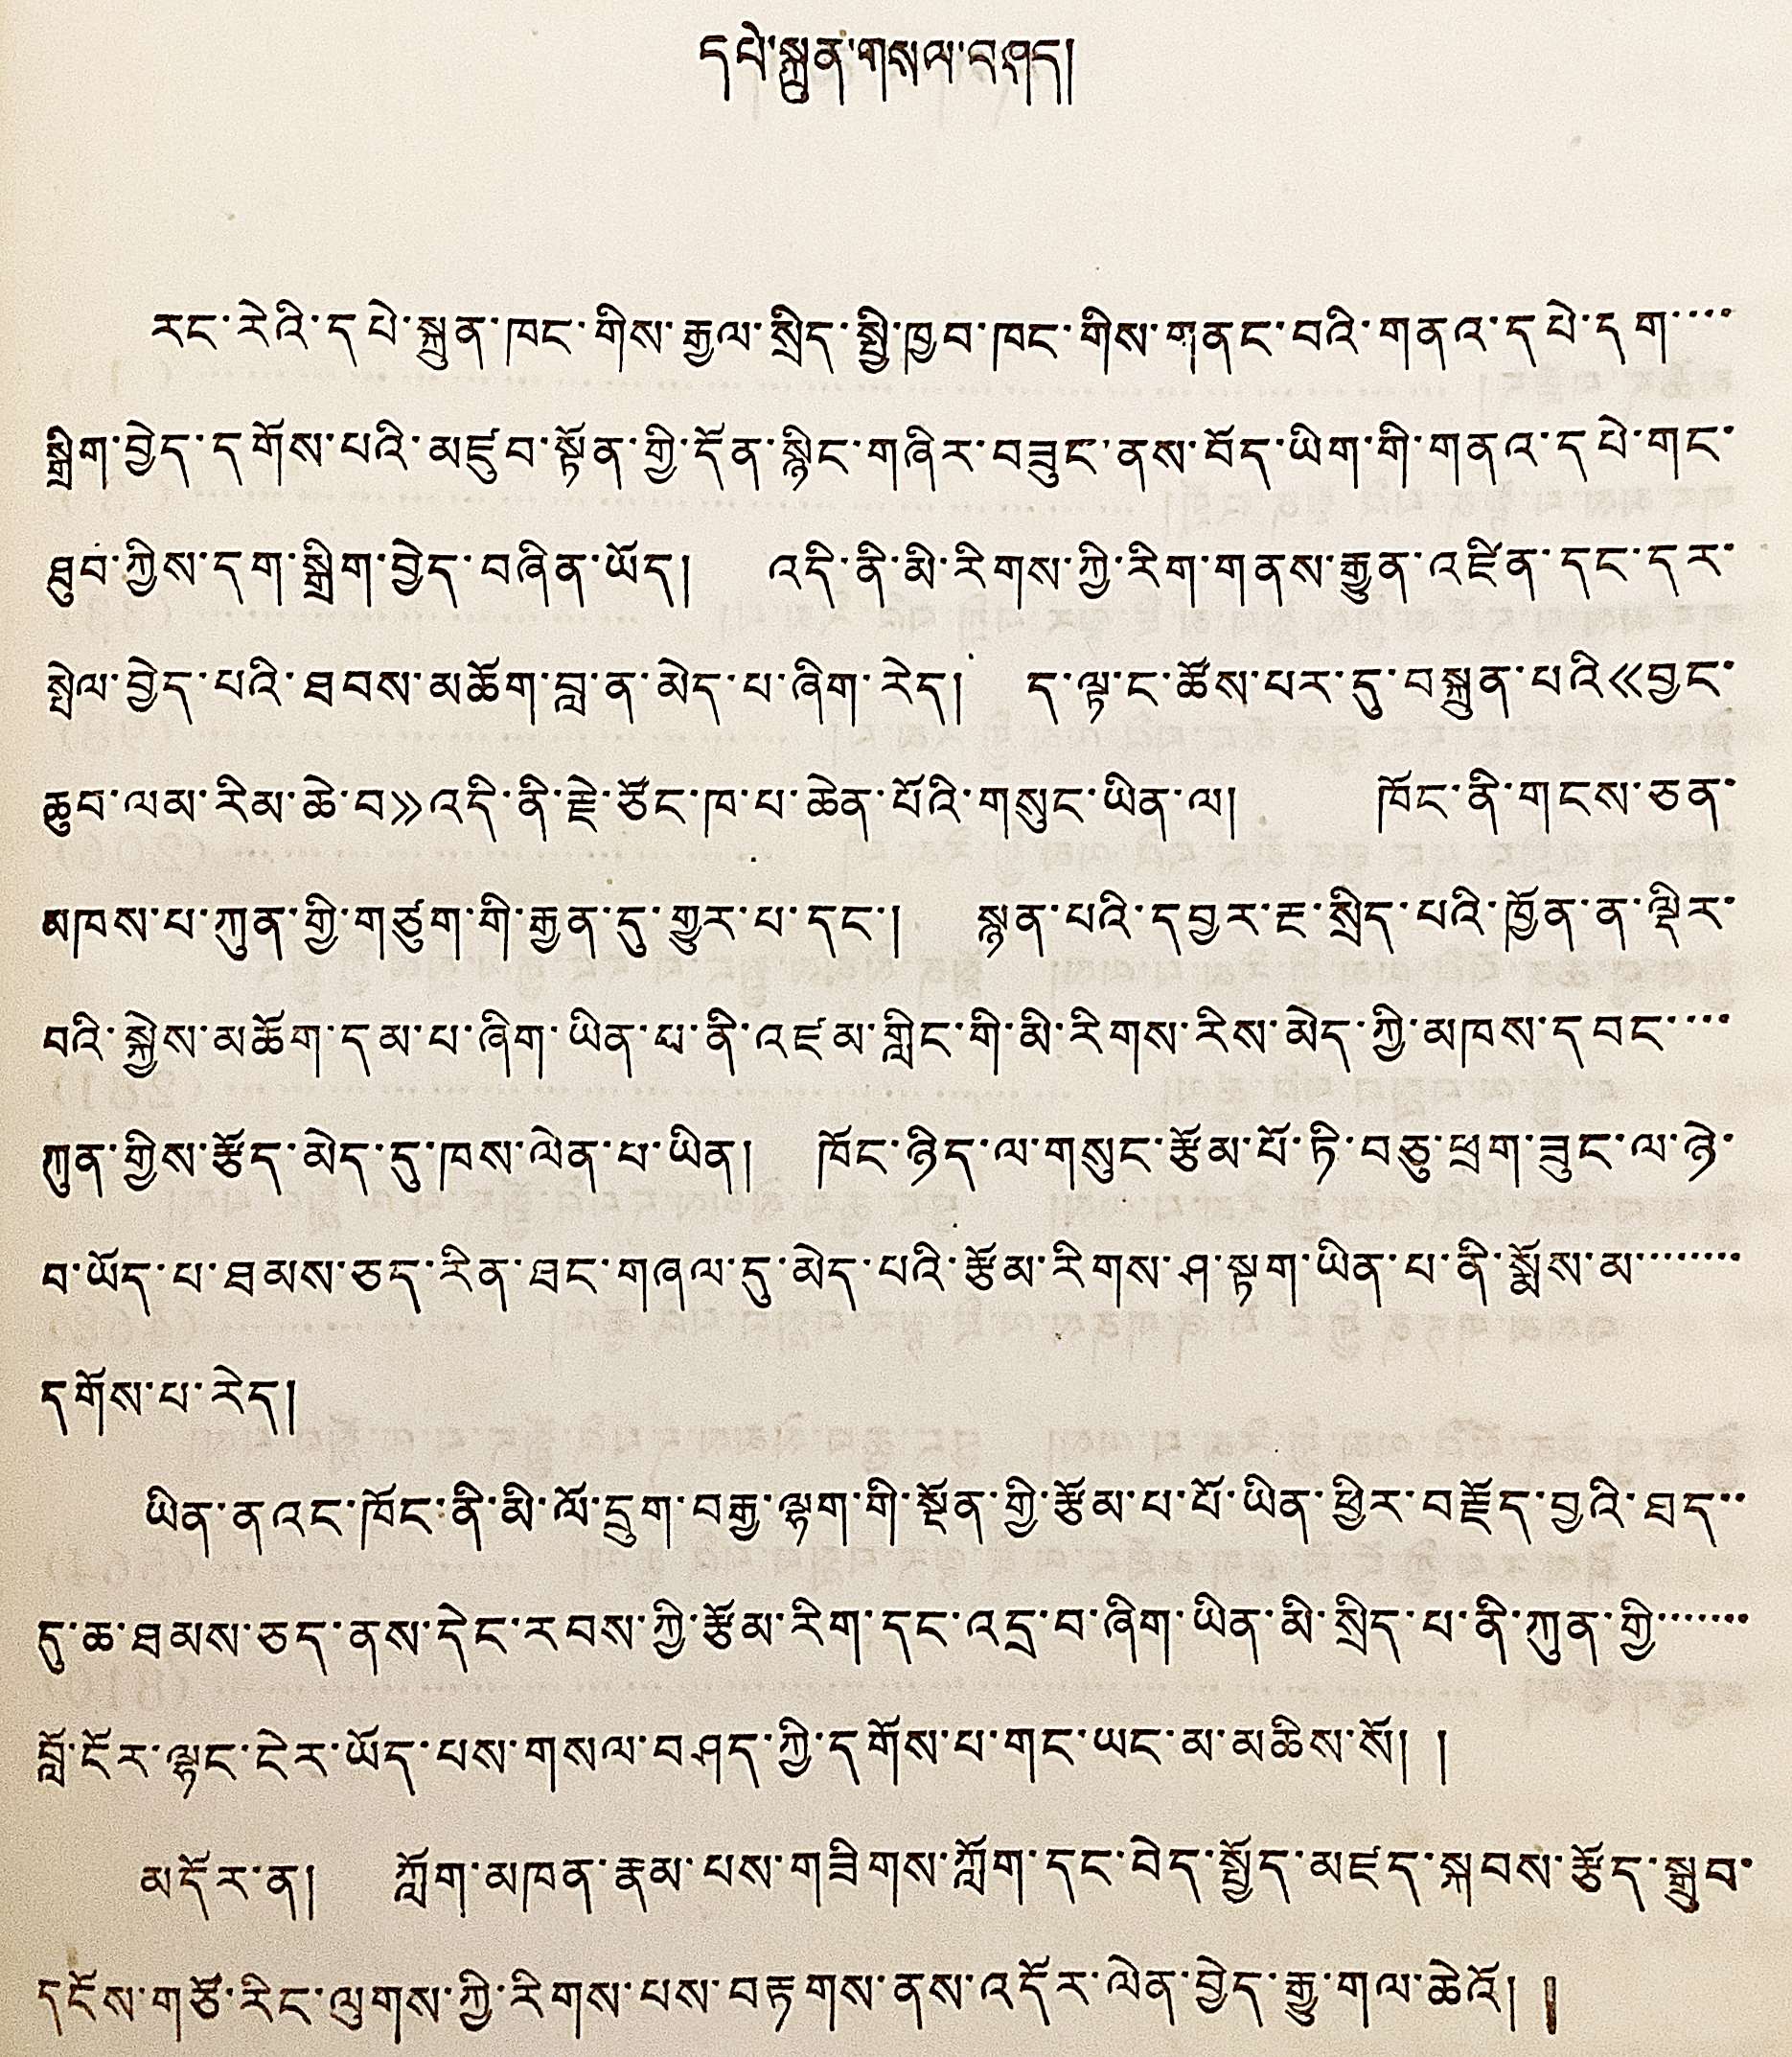 དཔེ་སྐྲུན་གསལ་བཤད།
རང་རེའི་དཔེ་སྐྲུན་ཁང་གིས་རྒྱལ་སྲིད་སྤྱི་ཁྱབ་ཁང་གིས་གནང་བའི་གནའ་དཔེ་དག་་་་
སྒྲིག་བྱེད་དགོས་པའི་མཛུབ་སྟོན་གྱི་དོན་སྙིང་གཞིར་བཟུང་ནས་བོད་ཡིག་གི་གནའ་དཔེ་གང་
ཐུབ་ཀྱིས་དག་སྒྲིག་བྱེད་བཞིན་ཡོད། འདི་ནི་མི་རིགས་ཀྱི་རིག་གནས་རྒྱུན་འཛིན་དང་དར་
སྤེལ་བྱེད་པའི་ཐབས་མཆོག་བླ་ན་མེད་པ་ཞིག་རེད། ད་ལྟ་ང་ཚོས་པར་དུ་བསྐྲུན་པའི《བྱང་
ཆུབ་ལམ་རིམ་ཆེ་བ》འདི་ནི་རྗེ་ཙོང་ཁ་པ་ཆེན་པོའི་གསུང་ཡིན་ལ། ཁོང་ནི་གངས་ཅན་
མཁས་པ་ཀུན་གྱི་གཙུག་གི་རྒྱན་དུ་གྱུར་པ་དང་། སྙན་པའི་དབྱར་རྔ་སྲིད་པའི་ཁྱོན་ན་ལྡིར་
བའི་སྐྱེས་མཆོག་དམ་པ་ཞིག་ཡིན་པ་ནི་འཛམ་གླིང་གི་མི་རིགས་རིས་མེད་ཀྱི་མཁས་དབང་་་་
ཀུན་གྱིས་རྩོད་མེད་དུ་ཁས་ལེན་པ་ཡིན། ཁོང་ཉིད་ལ་གསུང་རྩོམ་པོ་ཏི་བཅུ་ཕྲག་ཟུང་ལ་ཉེ་
བ་ཡོད་པ་ཐམས་ཅད་རིན་ཐང་གཞལ་དུ་མེད་པའི་རྩོམ་རིགས་ཤ་སྟག་ཡིན་པ་ནི་སྨོས་མ་་་་་་་་
དགོས་པ་རེད།
ཡིན་ནའང་ཁོང་ནི་མི་ལོ་དྲུག་བརྒྱ་ལྷག་གི་སྔོན་གྱི་རྩོམ་པ་པོ་ཡིན་ཕྱིར་བརྗོད་བྱའི་ཐད་་
དུ་ཆ་ཐམས་ཅད་ནས་དེང་རབས་ཀྱི་རྩོམ་རིག་དང་འདྲ་བ་ཞིག་ཡིན་མི་སྲིད་པ་ནི་ཀུན་གྱི་་་་་་་
བློ་ངོར་ལྷང་ངེར་ཡོད་པས་གསལ་བཤད་ཀྱི་དགོས་པ་གང་ཡང་མ་མཆིས་སོ། །
མདོར་ན། ཀློག་མཁན་རྣམ་པས་གཟིགས་ཀློག་དང་བེད་སྤྱོད་མཛད་སྐབས་རྩོད་སྒྲུབ་
དངོས་གཙོ་རིང་ལུགས་ཀྱི་རིགས་པས་བརྟགས་ནས་འདོར་ལེན་བྱེད་རྒྱུ་གལ་ཆེའོ། །